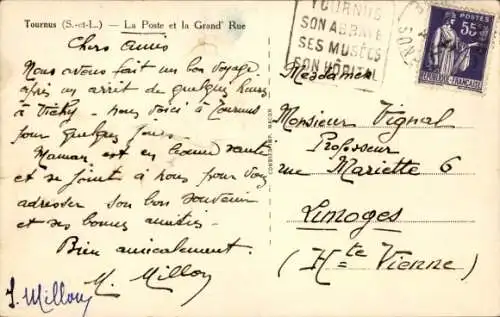 Tournus (S.-et-L.) — La Poste et la Grand' Rue
Chers amis
Nous avons fait un bon voyage
après un arrêt de quelques heures
à Vichy — nous voici à Tournus
pour quelques jours.
Maman est en bonne santé
et se joint à nous pour vous
adresser son bon souvenir
et ses bonnes amitiés.
Bien amicalement.
M. Millon
J. Millon
TOURNUS
SON ABBAYE
SES MUSÉES
SON HÔPITAL
POSTES
55c
REPUBLIQUE FRANÇAISE
Mesdames
Monsieur Vignal
Professeur
rue Mariette 6
Limoges
(Hte Vienne)